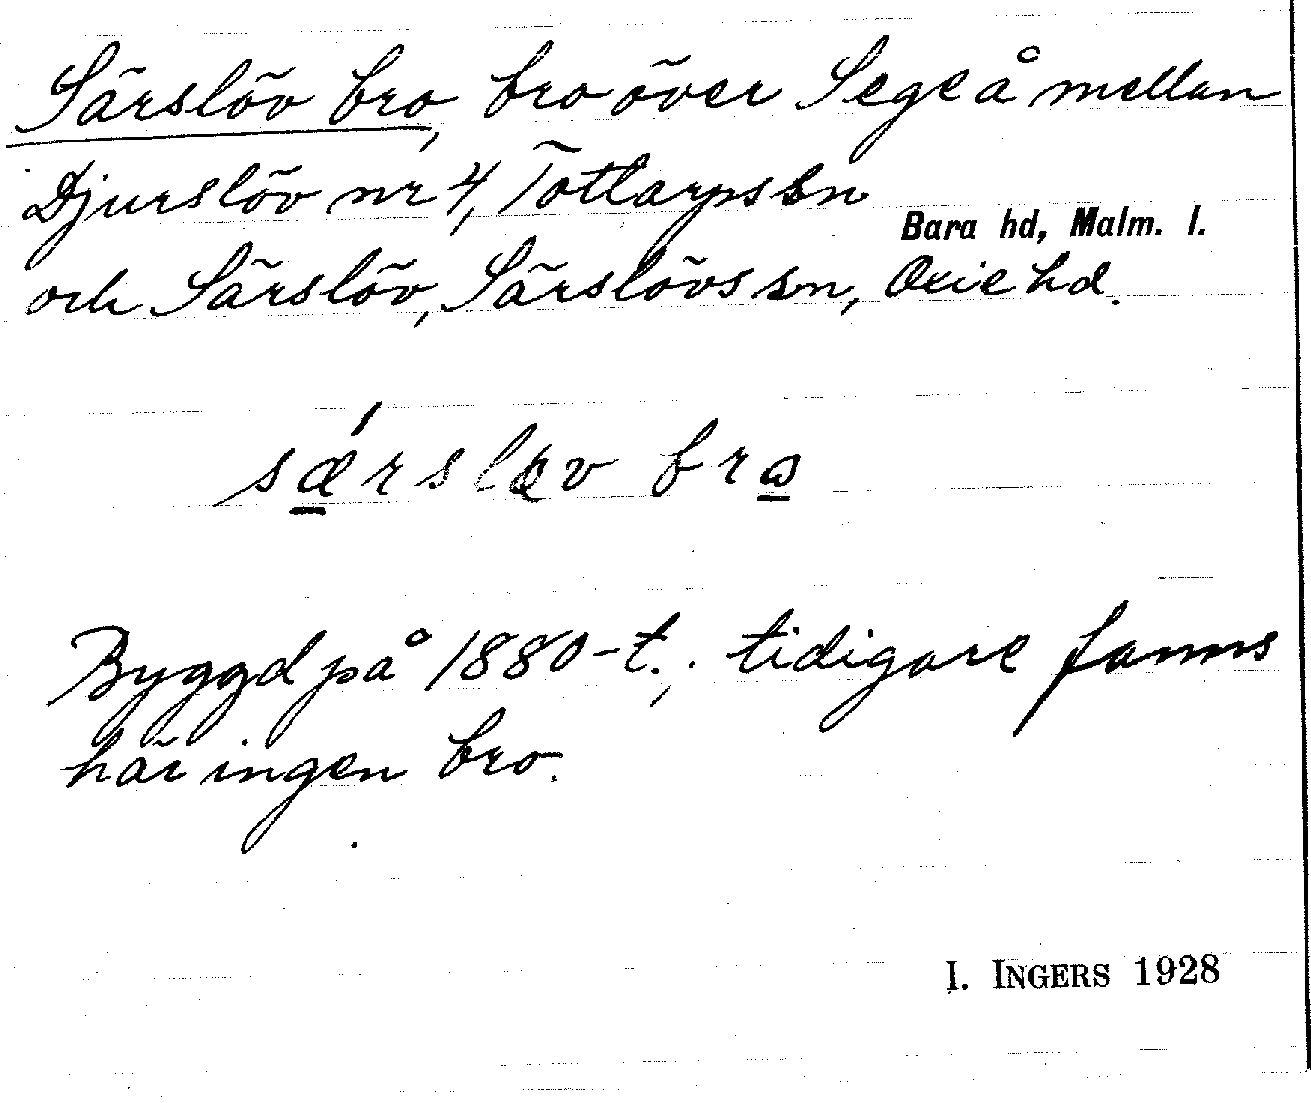 Särslöv bro, bro över Segeå mellan
Djurslöv nr 4, Tottarps sn
Bara hd, Malm. l.
och Särslöv, Särslövs sn, Oxie hd.
bro
Byggd på 1880-t.; tidigare fanns
här ingen bro.
I. INGERS 1928